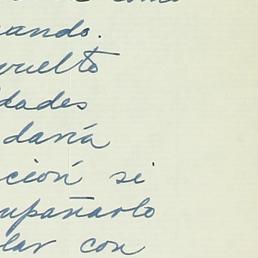 como
uando.
vuelto
dades
daría
ción si
mpañarlo
lar con